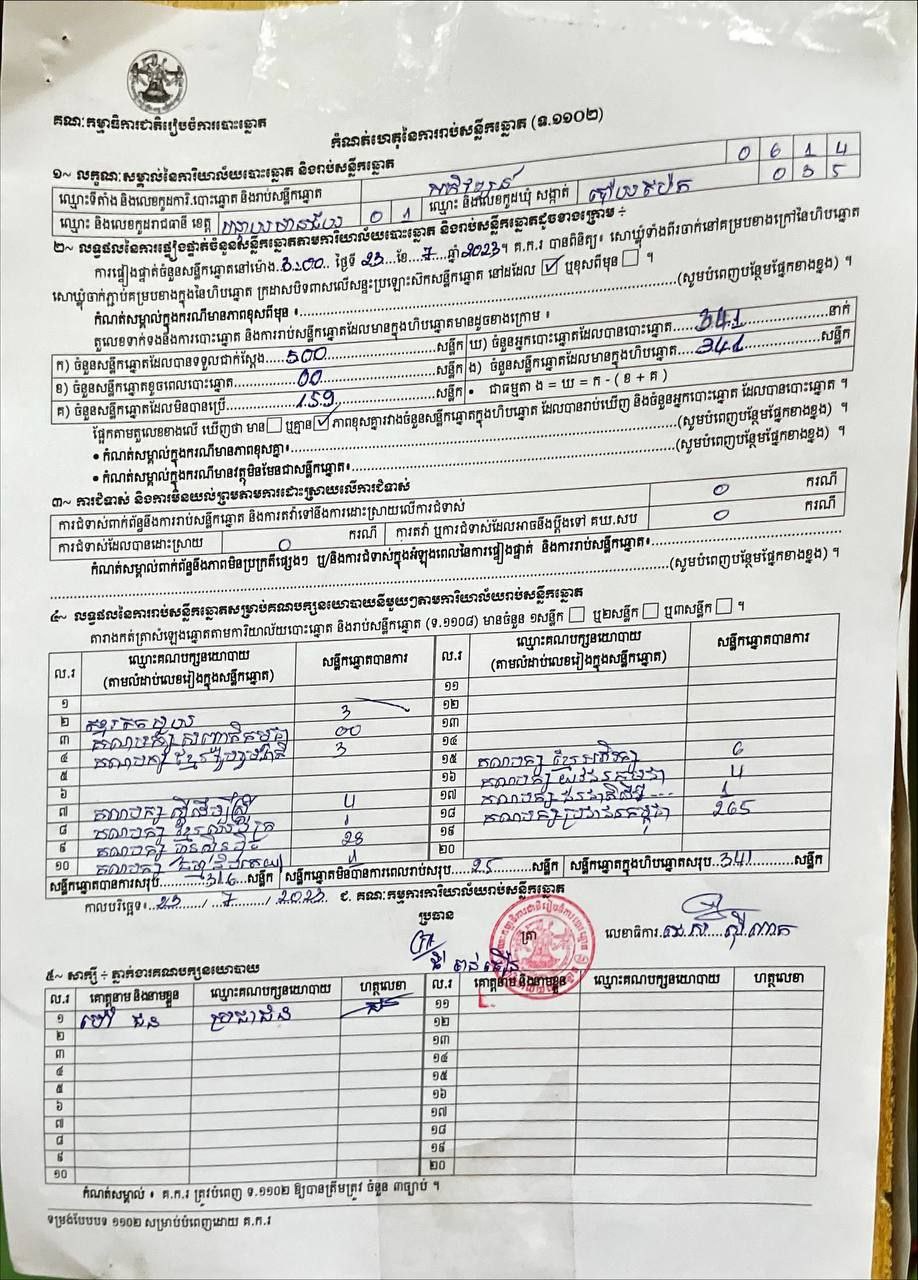 គណៈកម្មាធិការជាតិរៀបចំការបោះឆ្នោត
កំណត់ហេតុនៃការរាប់សន្លឹកឆ្នោត (ទ.១១០២)
១~ លក្ខណៈសម្គាល់នៃការិយាល័យបោះឆ្នោត និងរាប់សន្លឹកឆ្នោត
0 6 1 4
ឈ្មោះទីតាំង និងលេខកូដការិ.បោះឆ្នោត និងរាប់សន្លឹកឆ្នោត 0 3 5
ឈ្មោះ និងលេខកូដរាជធានី ខេត្ត បន្ទាយមានជ័យ 0 1 ឈ្មោះ និងលេខកូដឃុំ សង្កាត់ ប៉ោយប៉ែត
២~ លទ្ធផលនៃការផ្ទៀងផ្ទាត់ចំនួនសន្លឹកឆ្នោតតាមការិយាល័យបោះឆ្នោត និងរាប់សន្លឹកឆ្នោតដូចខាងក្រោម ÷
ការផ្ទៀងផ្ទាត់ចំនួនសន្លឹកឆ្នោតនៅម៉ោង.3:00.. ថ្ងៃទី 23...ខែ..7...ឆ្នាំ.2023។ គ.ក.រ បានពិនិត្យ៖ សោឃ្លុំទាំងពីរចាក់នៅគម្របខាងក្រៅនៃហិបឆ្នោត
សោឃ្លុំចាក់ភ្ជាប់គម្របខាងក្នុងនៃហិបឆ្នោត ក្រដាសបិទពាសលើសន្ទះប្រឡោះស៊កសន្លឹកឆ្នោត នៅដដែល ☑ ឬខុសពីមុន ☐ ។
កំណត់សម្គាល់ក្នុងករណីមានភាពខុសពីមុន ៖ (សូមបំពេញបន្ថែមផ្នែកខាងខ្នង) ។
តួលេខទាក់ទងនឹងការបោះឆ្នោត និងការរាប់សន្លឹកឆ្នោតដែលមានក្នុងហិបឆ្នោតមានដូចខាងក្រោម ៖
ក) ចំនួនសន្លឹកឆ្នោតដែលបានទទួលជាក់ស្តែង 500 សន្លឹក ឃ) ចំនួនអ្នកបោះឆ្នោតដែលបានបោះឆ្នោត 341 នាក់
ខ) ចំនួនសន្លឹកឆ្នោតខូចពេលបោះឆ្នោត 00 សន្លឹក ង) ចំនួនសន្លឹកឆ្នោតដែលមានក្នុងហិបឆ្នោត 341 សន្លឹក
គ) ចំនួនសន្លឹកឆ្នោតដែលមិនបានប្រើ 159 សន្លឹក • ជាធម្មតា ង = ឃ = ក - ( ខ + គ )
ផ្អែកតាមតួលេខខាងលើ ឃើញថា មាន☐ ឬគ្មាន☑ ភាពខុសគ្នារវាងចំនួនសន្លឹកឆ្នោតក្នុងហិបឆ្នោត ដែលបានរាប់ឃើញ និងចំនួនអ្នកបោះឆ្នោត ដែលបានបោះឆ្នោត ។
• កំណត់សម្គាល់ក្នុងករណីមានភាពខុសគ្នា៖ (សូមបំពេញបន្ថែមផ្នែកខាងខ្នង) ។
• កំណត់សម្គាល់ក្នុងករណីមានវត្ថុមិនមែនជាសន្លឹកឆ្នោត៖ (សូមបំពេញបន្ថែមផ្នែកខាងខ្នង) ។
៣~ ការជំទាស់ និងការមិនយល់ព្រមតាមការដោះស្រាយលើការជំទាស់
ការជំទាស់ពាក់ព័ន្ធនឹងការរាប់សន្លឹកឆ្នោត និងការតវ៉ាទៅនឹងការដោះស្រាយលើការជំទាស់ 0 ករណី
ការជំទាស់ដែលបានដោះស្រាយ 0 ករណី ការតវ៉ា ឬការជំទាស់ដែលអាចនឹងប្តឹងទៅ គឃ.សប 0 ករណី
កំណត់សម្គាល់ពាក់ព័ន្ធនឹងភាពមិនប្រក្រតីផ្សេងៗ ឬ/និងការជំទាស់ក្នុងអំឡុងពេលនៃការផ្ទៀងផ្ទាត់ និងការរាប់សន្លឹកឆ្នោត៖
(សូមបំពេញបន្ថែមផ្នែកខាងខ្នង) ។
៤~ លទ្ធផលនៃការរាប់សន្លឹកឆ្នោតសម្រាប់គណបក្សនយោបាយនីមួយៗតាមការិយាល័យរាប់សន្លឹកឆ្នោត
តារាងកត់ត្រាសំឡេងឆ្នោតតាមការិយាល័យបោះឆ្នោត និងរាប់សន្លឹកឆ្នោត (ទ.១១០៨) មានចំនួន ១សន្លឹក ☐ ឬ២សន្លឹក ☐ ឬ៣សន្លឹក ☐ ។
ល.រ ឈ្មោះគណបក្សនយោបាយ (តាមលំដាប់លេខរៀងក្នុងសន្លឹកឆ្នោត) សន្លឹកឆ្នោតបានការ ល.រ ឈ្មោះគណបក្សនយោបាយ (តាមលំដាប់លេខរៀងក្នុងសន្លឹកឆ្នោត) សន្លឹកឆ្នោតបានការ
១ ១១
២ 3 ១២
៣ គណបក្ស 00 ១៣
៤ គណបក្ស ខ្មែរ 3 ១៤
៥ ១៥ គណបក្ស ខ្មែរ 6
៦ ១៦ គណបក្ស 4
៧ គណបក្ស ដើម្បីស្ត្រី 4 ១៧ គណបក្ស 1
៨ គណបក្ស ខ្មែរ 1 ១៨ គណបក្ស ប្រជាជនកម្ពុជា 265
៩ គណបក្ស ហ៊្វុនស៊ិនប៉ិច 28 ១៩
១០ គណបក្ស 1 ២០
សន្លឹកឆ្នោតបានការសរុប 316 សន្លឹក សន្លឹកឆ្នោតមិនបានការពេលរាប់សរុប 25 សន្លឹក សន្លឹកឆ្នោតក្នុងហិបឆ្នោតសរុប 341 សន្លឹក
កាលបរិច្ឆេទ៖ 23 / 7 / 2023 ជ. គណៈកម្មការការិយាល័យរាប់សន្លឹកឆ្នោត
ប្រធាន
ត្រា លេខាធិការ
៥~ សាក្សី ÷ ភ្នាក់ងារគណបក្សនយោបាយ
ល.រ គោត្តនាម និងនាមខ្លួន ឈ្មោះគណបក្សនយោបាយ ហត្ថលេខា ល.រ គោត្តនាម និងនាមខ្លួន ឈ្មោះគណបក្សនយោបាយ ហត្ថលេខា
១ ប្រជាជន ១១
២ ១២
៣ ១៣
៤ ១៤
៥ ១៥
៦ ១៦
៧ ១៧
៨ ១៨
៩ ១៩
១០ ២០
កំណត់សម្គាល់ ៖ គ.ក.រ ត្រូវបំពេញ ទ.១១០២ ឱ្យបានត្រឹមត្រូវ ចំនួន ៣ច្បាប់ ។
ទម្រង់បែបបទ ១១០២ សម្រាប់បំពេញដោយ គ.ក.រ